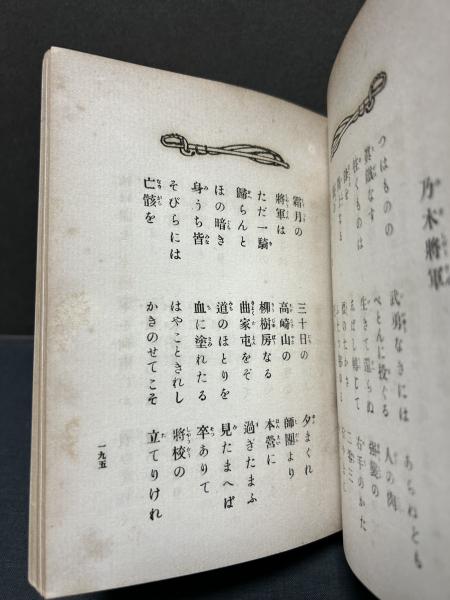 乃木將軍
つはものの 武勇なきには あらねども
眞鐵なす べとんに投ぐる 人の肉
往くものは 生きて還らぬ 強襲の
しばし轉じて 右手のかた
霜月の 三十日の 夕まぐれ
將軍は 高崎山の 師團より
ただ一騎 柳樹房なる 本營に
歸らんと 曲家屯をぞ 過ぎたまふ
ほの暗き 道のほとりを 見たまへば
身うち皆 血に塗れたる 卒ありて
そびらには はやこときれし 將校の
亡骸を かきのせてこそ 立てりけれ
一九五